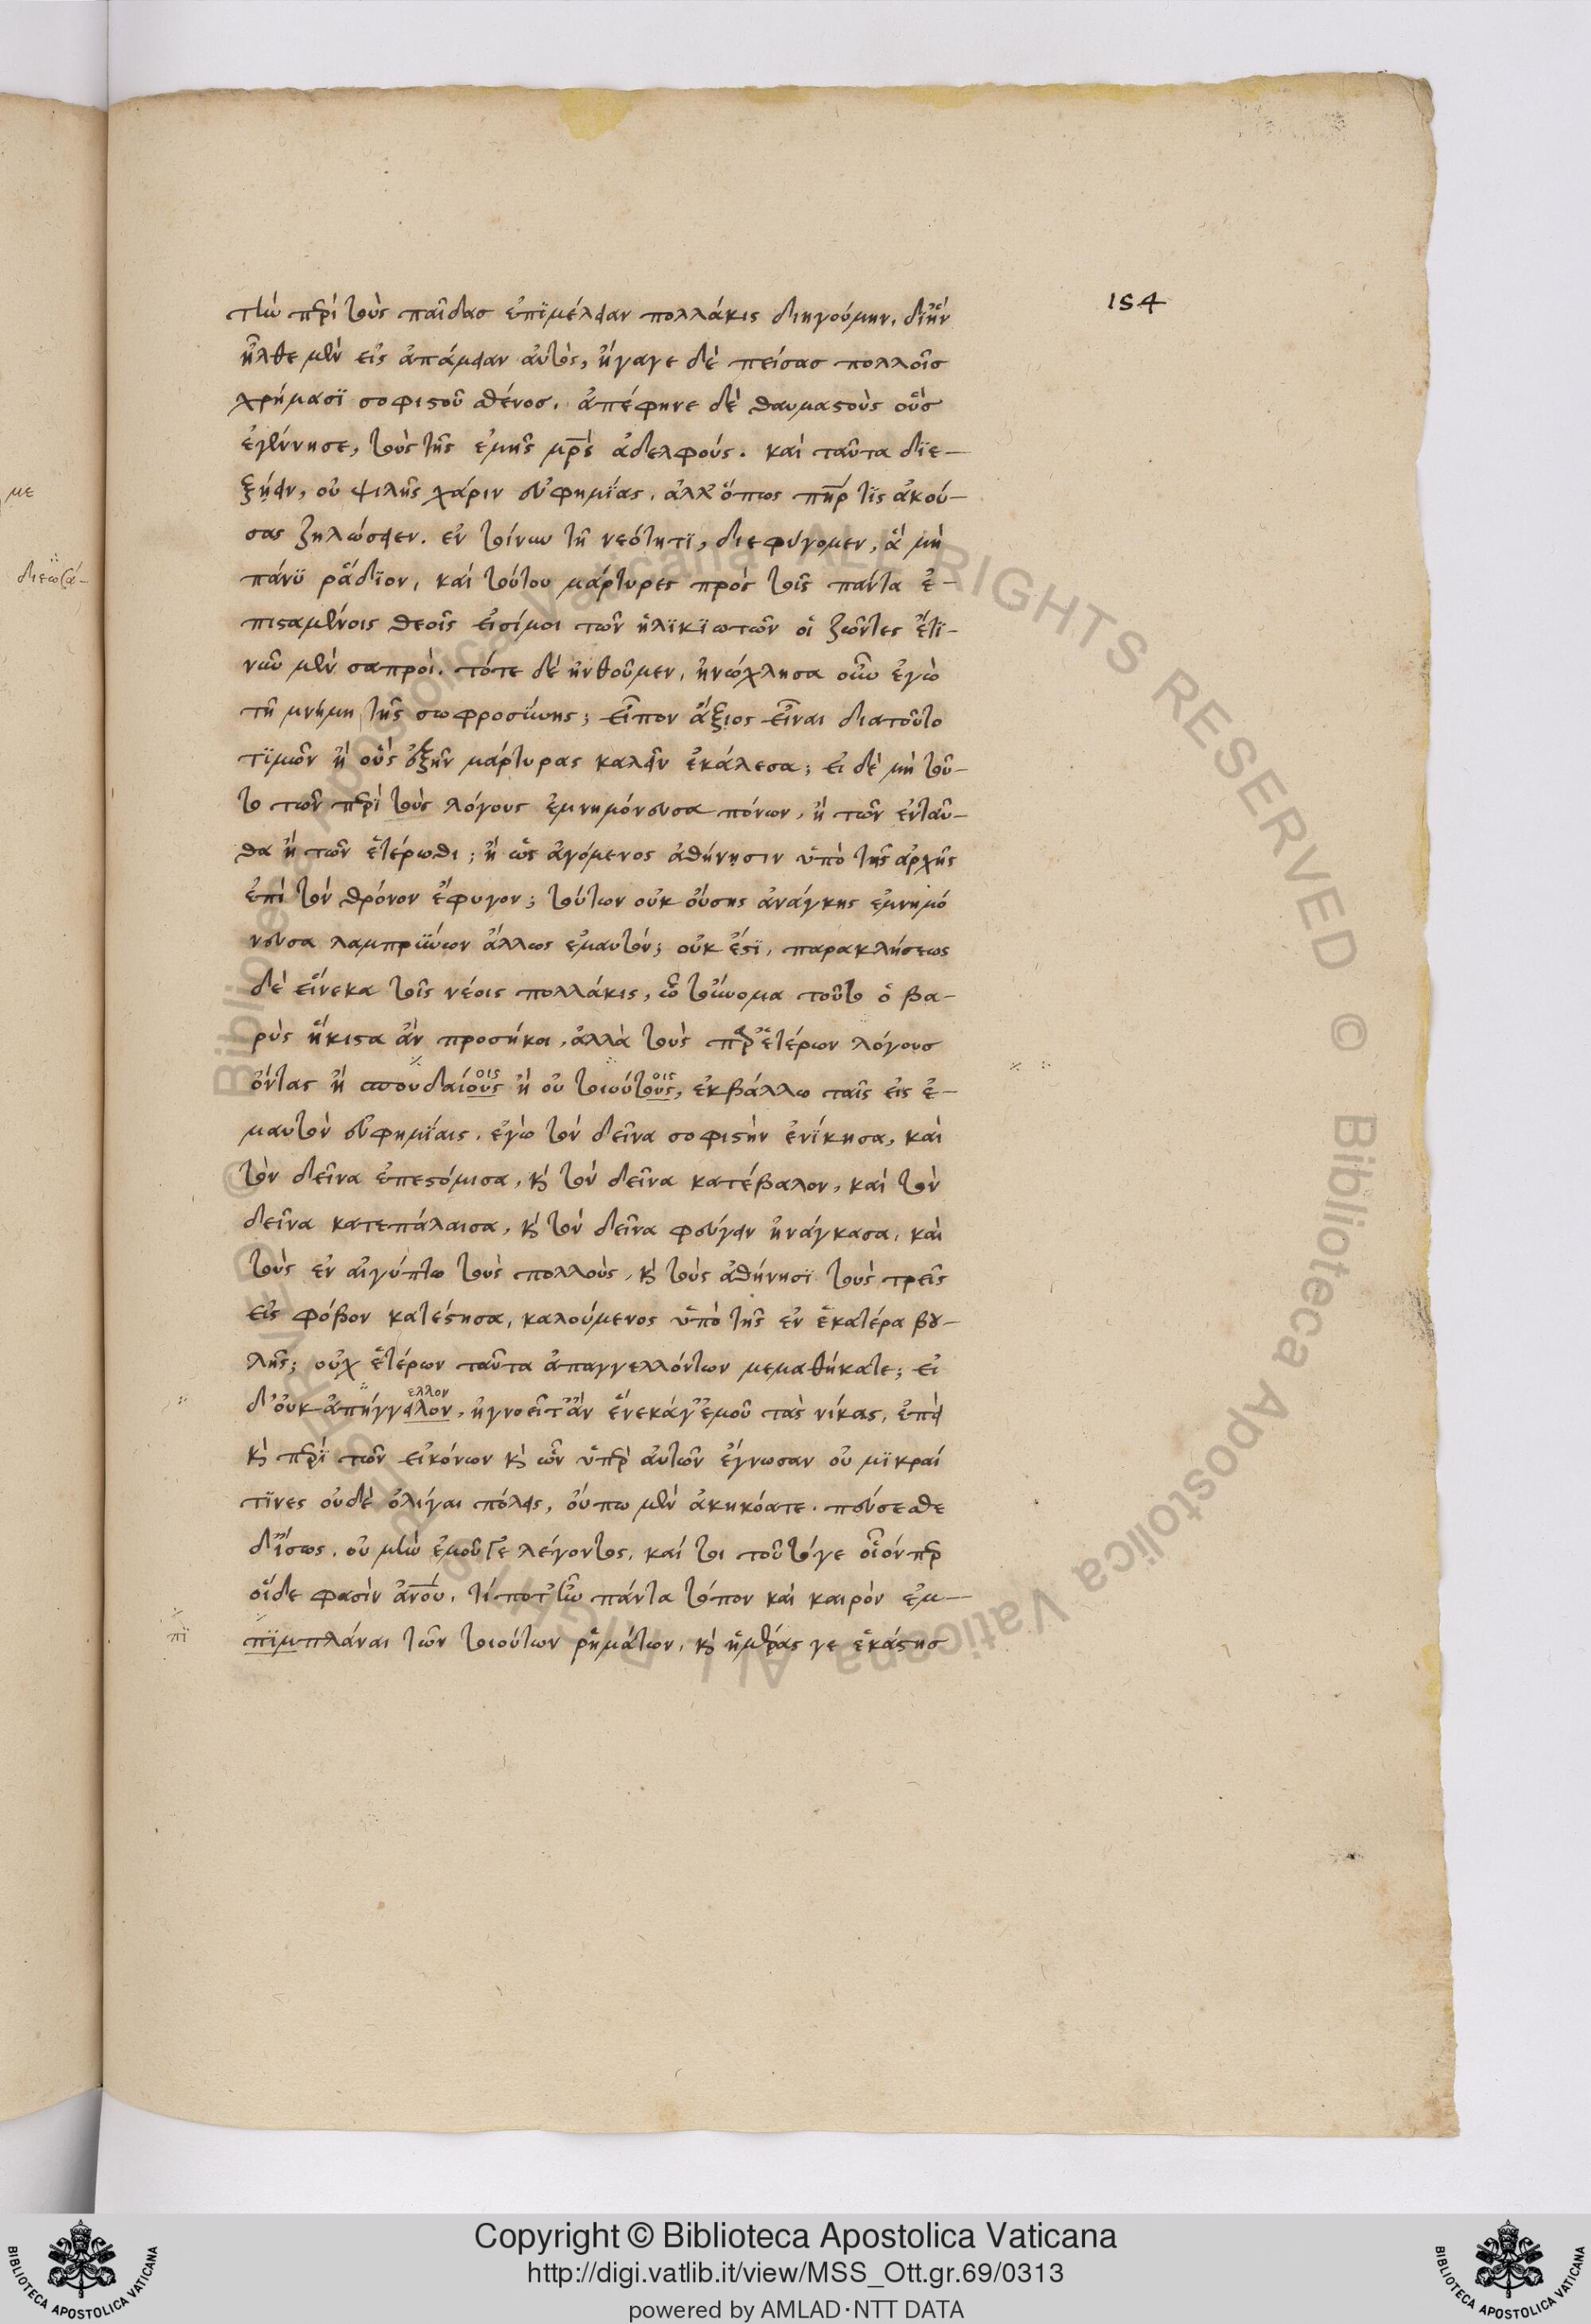 154
τὴν περὶ τοὺς παῖδας ἐπϊμέλειαν πολλάκις διηγούμην, δι' ἣν
ἦλθε μὲν εἰς ἀπάμειαν αὐτὸς, ἤγαγε δὲ πείσας πολλοῖς
χρήμασϊ σοφιστοῦ σθένος. ἀπέφηνε δὲ θαυμαστοὺς οὓς
ἐγέννησε, τοὺς τῆς ἐμῆς μρς ἀδελφούς. καὶ ταῦτα δϊε-
ξῄειν, οὐ ψιλῆς χάριν εὐφημίας, ἀλλ' ὅπως πηρ τὶς ἀκού-
σας ζηλώσειεν. ἐν τοίνυν τῇ νεότητϊ, διεφύγομεν, ἃ μὴ
πάνϋ ῥᾴδϊον, καὶ τούτου μάρτυρες πρὸς τοῖς πάντα ἐ-
πισταμένοις θεοῖς εἰσίμοι τῶν ἡλϊκϊωτῶν οἱ ζῶντες ἔτϊ-
νῦν μὲν σαπροὶ. τότε δὲ ἠνθοῦμεν, ἠνώχλησα οὖν ἐγὼ
τῇ μνήμῃ τῆς σωφροσύνης; εἶπον ἄξιος εἶναι διατοῦτο
τϊμῶν ἢ οὓς ἐξῆν μάρτυρας καλεῖν ἐκάλεσα; εἰ δὲ μὴ τοῦ-
το τῶν περὶ τοὺς λόγους ἐμνημόνευσα πόνων, ἢ τῶν ἐνταῦ-
θα ἢ τῶν ἑτέρωθι; ἢ ὡς ἀγόμενος ἀθήνησιν ὑπὸ τῆς ἀρχῆς
ἐπὶ τὸν θρόνον ἔφυγον; τούτων οὐκ οὔσης ἀνάγκης ἐμνημό
νευσα λαμπρύνων ἄλλως ἐμαυτόν; οὐκ ἔστϊ, παρακλήσεως
δὲ εἵνεκα τοῖς νέοις πολλάκις, ᾧ τοὔνομα τοῦτο ὁ βα-
ρὺς ἥκιστα ἂν προσήκοι, ἀλλὰ τοὺς παρ' ἑτέρων λόγους
ὄντας ἢ σπουδαίους οις ἢ οὐ τοιούτους οις, ἐκβάλλω ταῖς εἰς ἐ-
μαυτὸν εὐφημϊαις. ἐγὼ τὸν δεῖνα σοφιστὴν ἐνϊκησα, καὶ
τὸν δεῖνα ἐπεστόμισα, κὶ τὸν δεῖνα κατέβαλον, καὶ τὸν
δεῖνα κατεπάλαισα, κὶ τὸν δεῖνα φεύγειν ἠνάγκασα, καὶ
τοὺς ἐν αἰγύπτω τοὺς πολλοὺς, κὶ τοὺς ἀθήνησϊ τοὺς τρεῖς
εἰς φόβον κατέστησα, καλούμενος ὑπὸ τῆς ἐν ἑκατέρα βου-
λῆς; οὐχ ἑτέρων ταῦτα ἀπαγγελλόντων μεμαθήκατε; εἰ
δ' οὐκ ἀπήγγειλον ελλον, ἠγνοεῖτ' ἂν ἕνεκάγ' ἐμοῦ τὰς νίκας, ἐπεὶ
κὶ περὶ τῶν εἰκόνων κὶ ὧν ὑπὲρ αὐτῶν ἔγνωσαν οὐ μϊκραί
τϊνες οὐδὲ ὀλίγαι πόλεις, οὔπω μὲν ἀκηκόατε. πεύσεσθε
δ' ἴσως. οὐ μὴν ἐμοῦ γε λέγοντος. καί τοι τοῦτόγε οἷόνπερ
οἵδε φασὶν ἀνου, τί ποτ' ἦν πάντα τόπον καὶ καιρὸν ἐμ-
πϊμπλάναι τῶν τοιούτων ῥημάτων, κὶ ἡμέρας γε ἑκάστης
πϊ
με